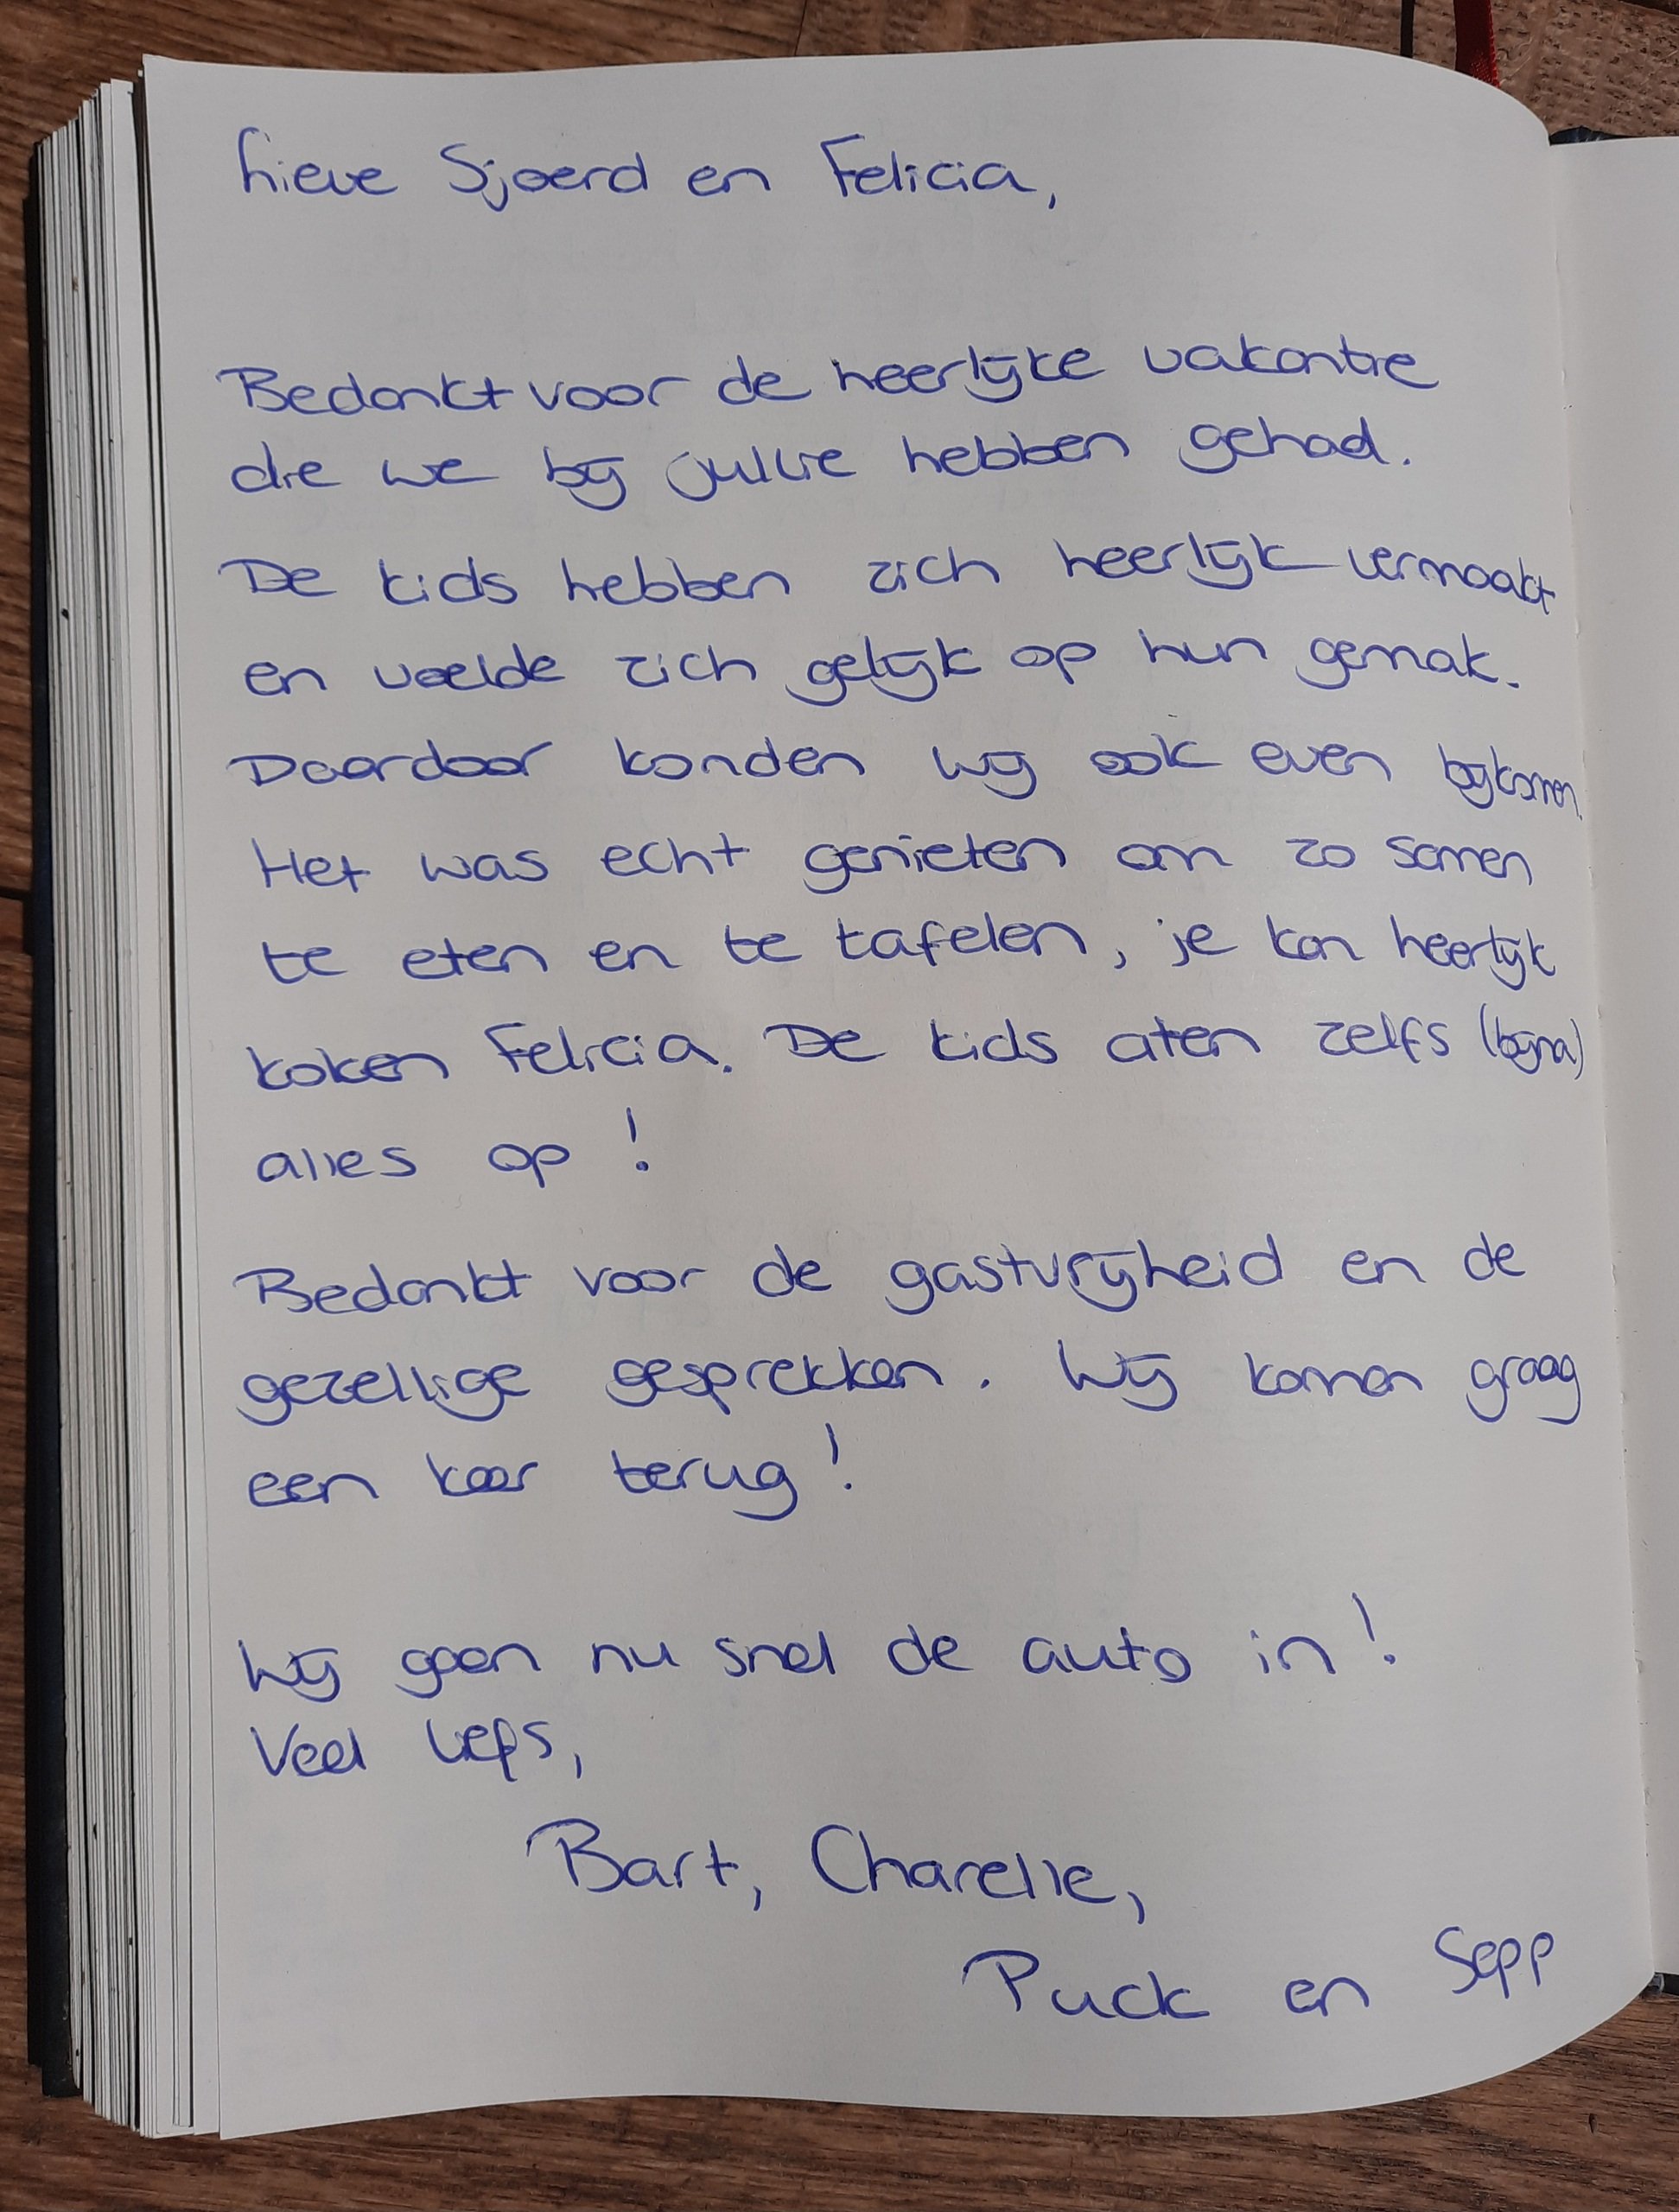 Lieve Sjoerd en Felicia,
Bedankt voor de heerlijke vakantie
die we bij jullie hebben gehad.
De kids hebben zich heerlijk vermaakt
en voelde zich gelijk op hun gemak.
Daardoor konden wij ook even bijkomen.
Het was echt genieten om zo samen
te eten en te tafelen, je kan heerlijk
koken Felicia. De kids aten zelfs (bijna)
alles op!
Bedankt voor de gastvrijheid en de
gezellige gesprekken. Wij komen graag
een keer terug!
Wij gaan nu snel de auto in!
Veel liefs,
Bart, Charelle,
Puck en Sepp